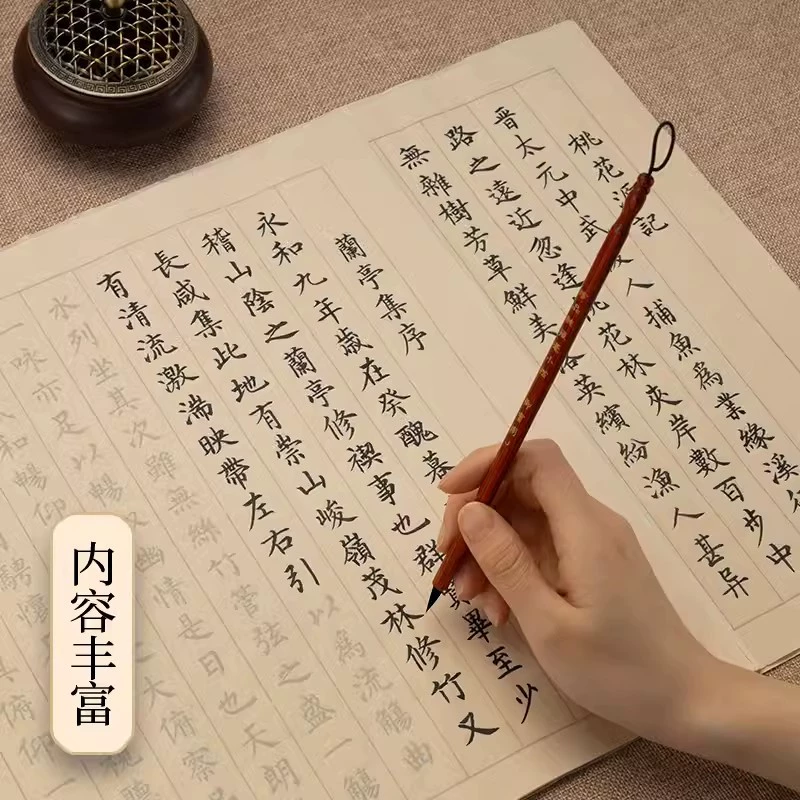 桃花源記
晋太元中武人捕魚爲業緣溪行
路之遠近忽逢桃花林夾岸數百步中
無雜樹芳草鮮美落英繽紛漁人甚异
蘭亭集序
永和九年歲在癸醜暮
稽山陰之蘭亭修禊事也群賢畢至少
長咸集此地有崇山峻嶺茂林修竹又
有清流激湍映帶左右引以爲流觴曲
水列坐其次雖無絲竹管弦之盛一觴
一咏亦足以暢幽情是日也天朗
和暢仰大俯察
内容丰富